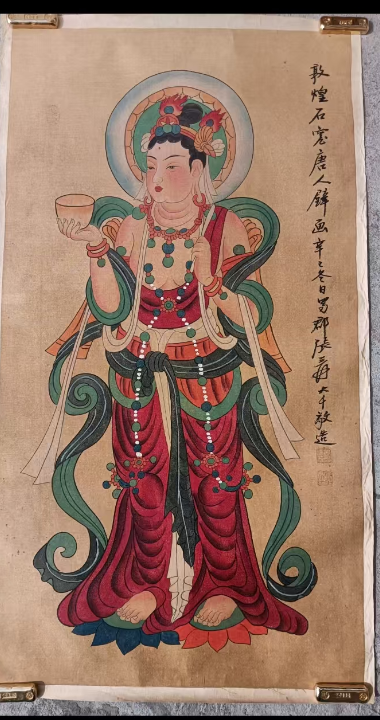 敦煌石窟唐人壁画辛巳冬日蜀郡張爰大千敬造